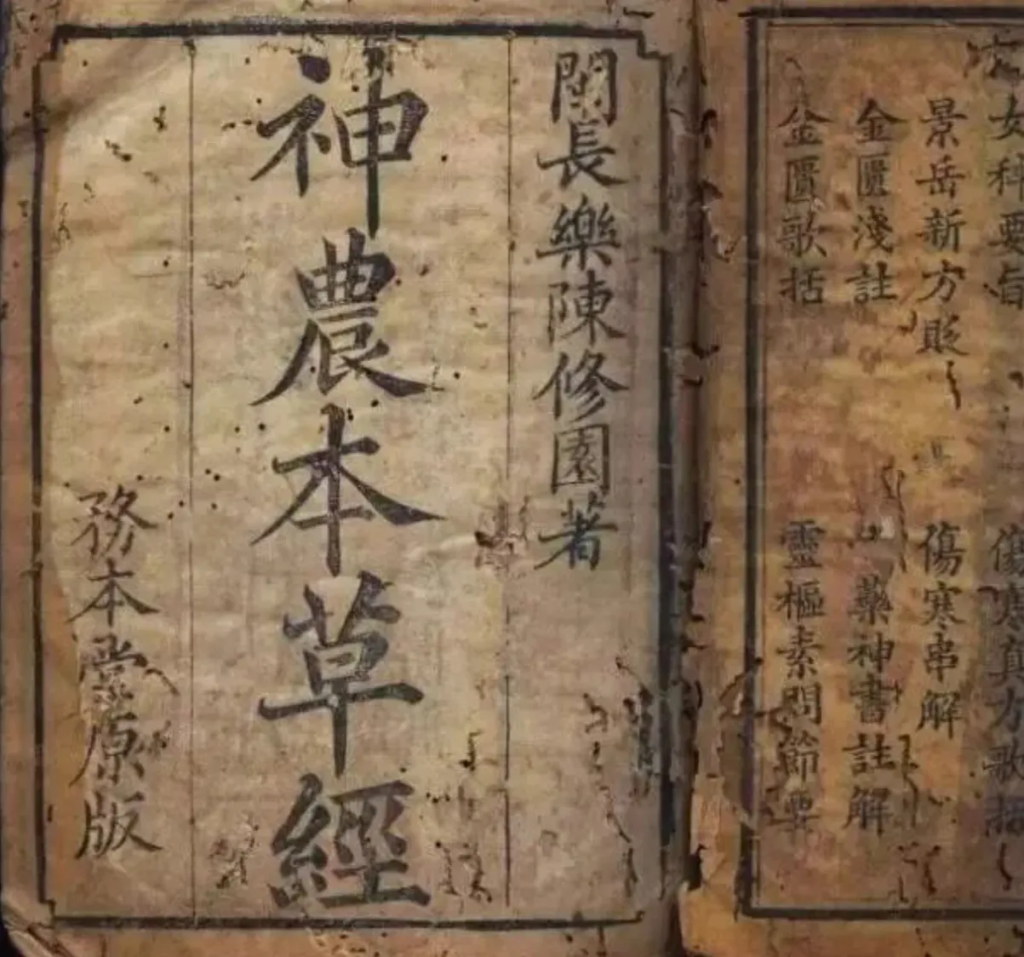 女科要旨
景岳新方貶
金匱淺註
金匱歌括
傷寒真方歌括
傷寒串解
藥神書註解
靈樞素問節要
閩長樂陳修園著
神農本草經
務本堂原版